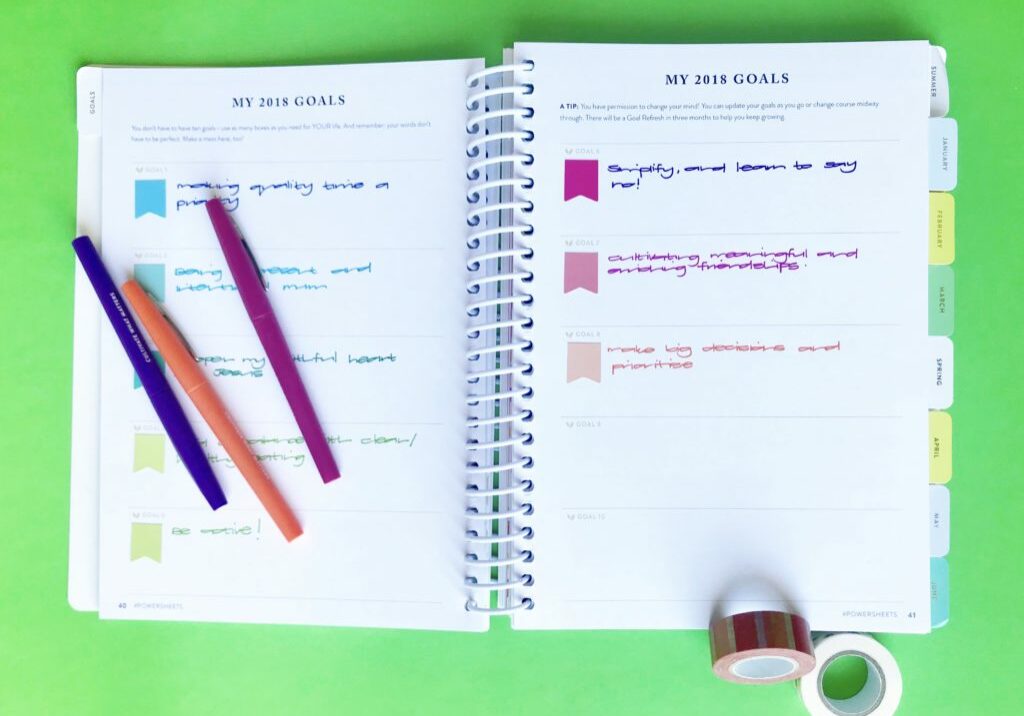 GOALS
MY 2018 GOALS
You don't have to have ten goals – use as many boxes as you need for YOUR life. And remember: your words don't
have to be perfect. Make a mess here, too!
GOAL 1
making quality time a
priority
GOAL 2
Being present and
intentional mum
open my faithful heart
Jesus
balance with clean/
healthy eating
GOAL 5
Be active!
40 #POWERSHEETS
CULTIVATE WHAT MATTERS
MY 2018 GOALS
A TIP: You have permission to change your mind! You can update your goals as you go or change course midway
through. There will be a Goal Refresh in three months to help you keep growing.
GOAL 6
Simplify, and learn to say
no!
GOAL 7
cultivating meaningful and
enriching friendships.
GOAL 8
make big decisions and
prioritise
GOAL 9
GOAL 10
#POWERSHEETS 41
SUMMER
JANUARY
FEBRUARY
MARCH
SPRING
APRIL
MAY
JUNE